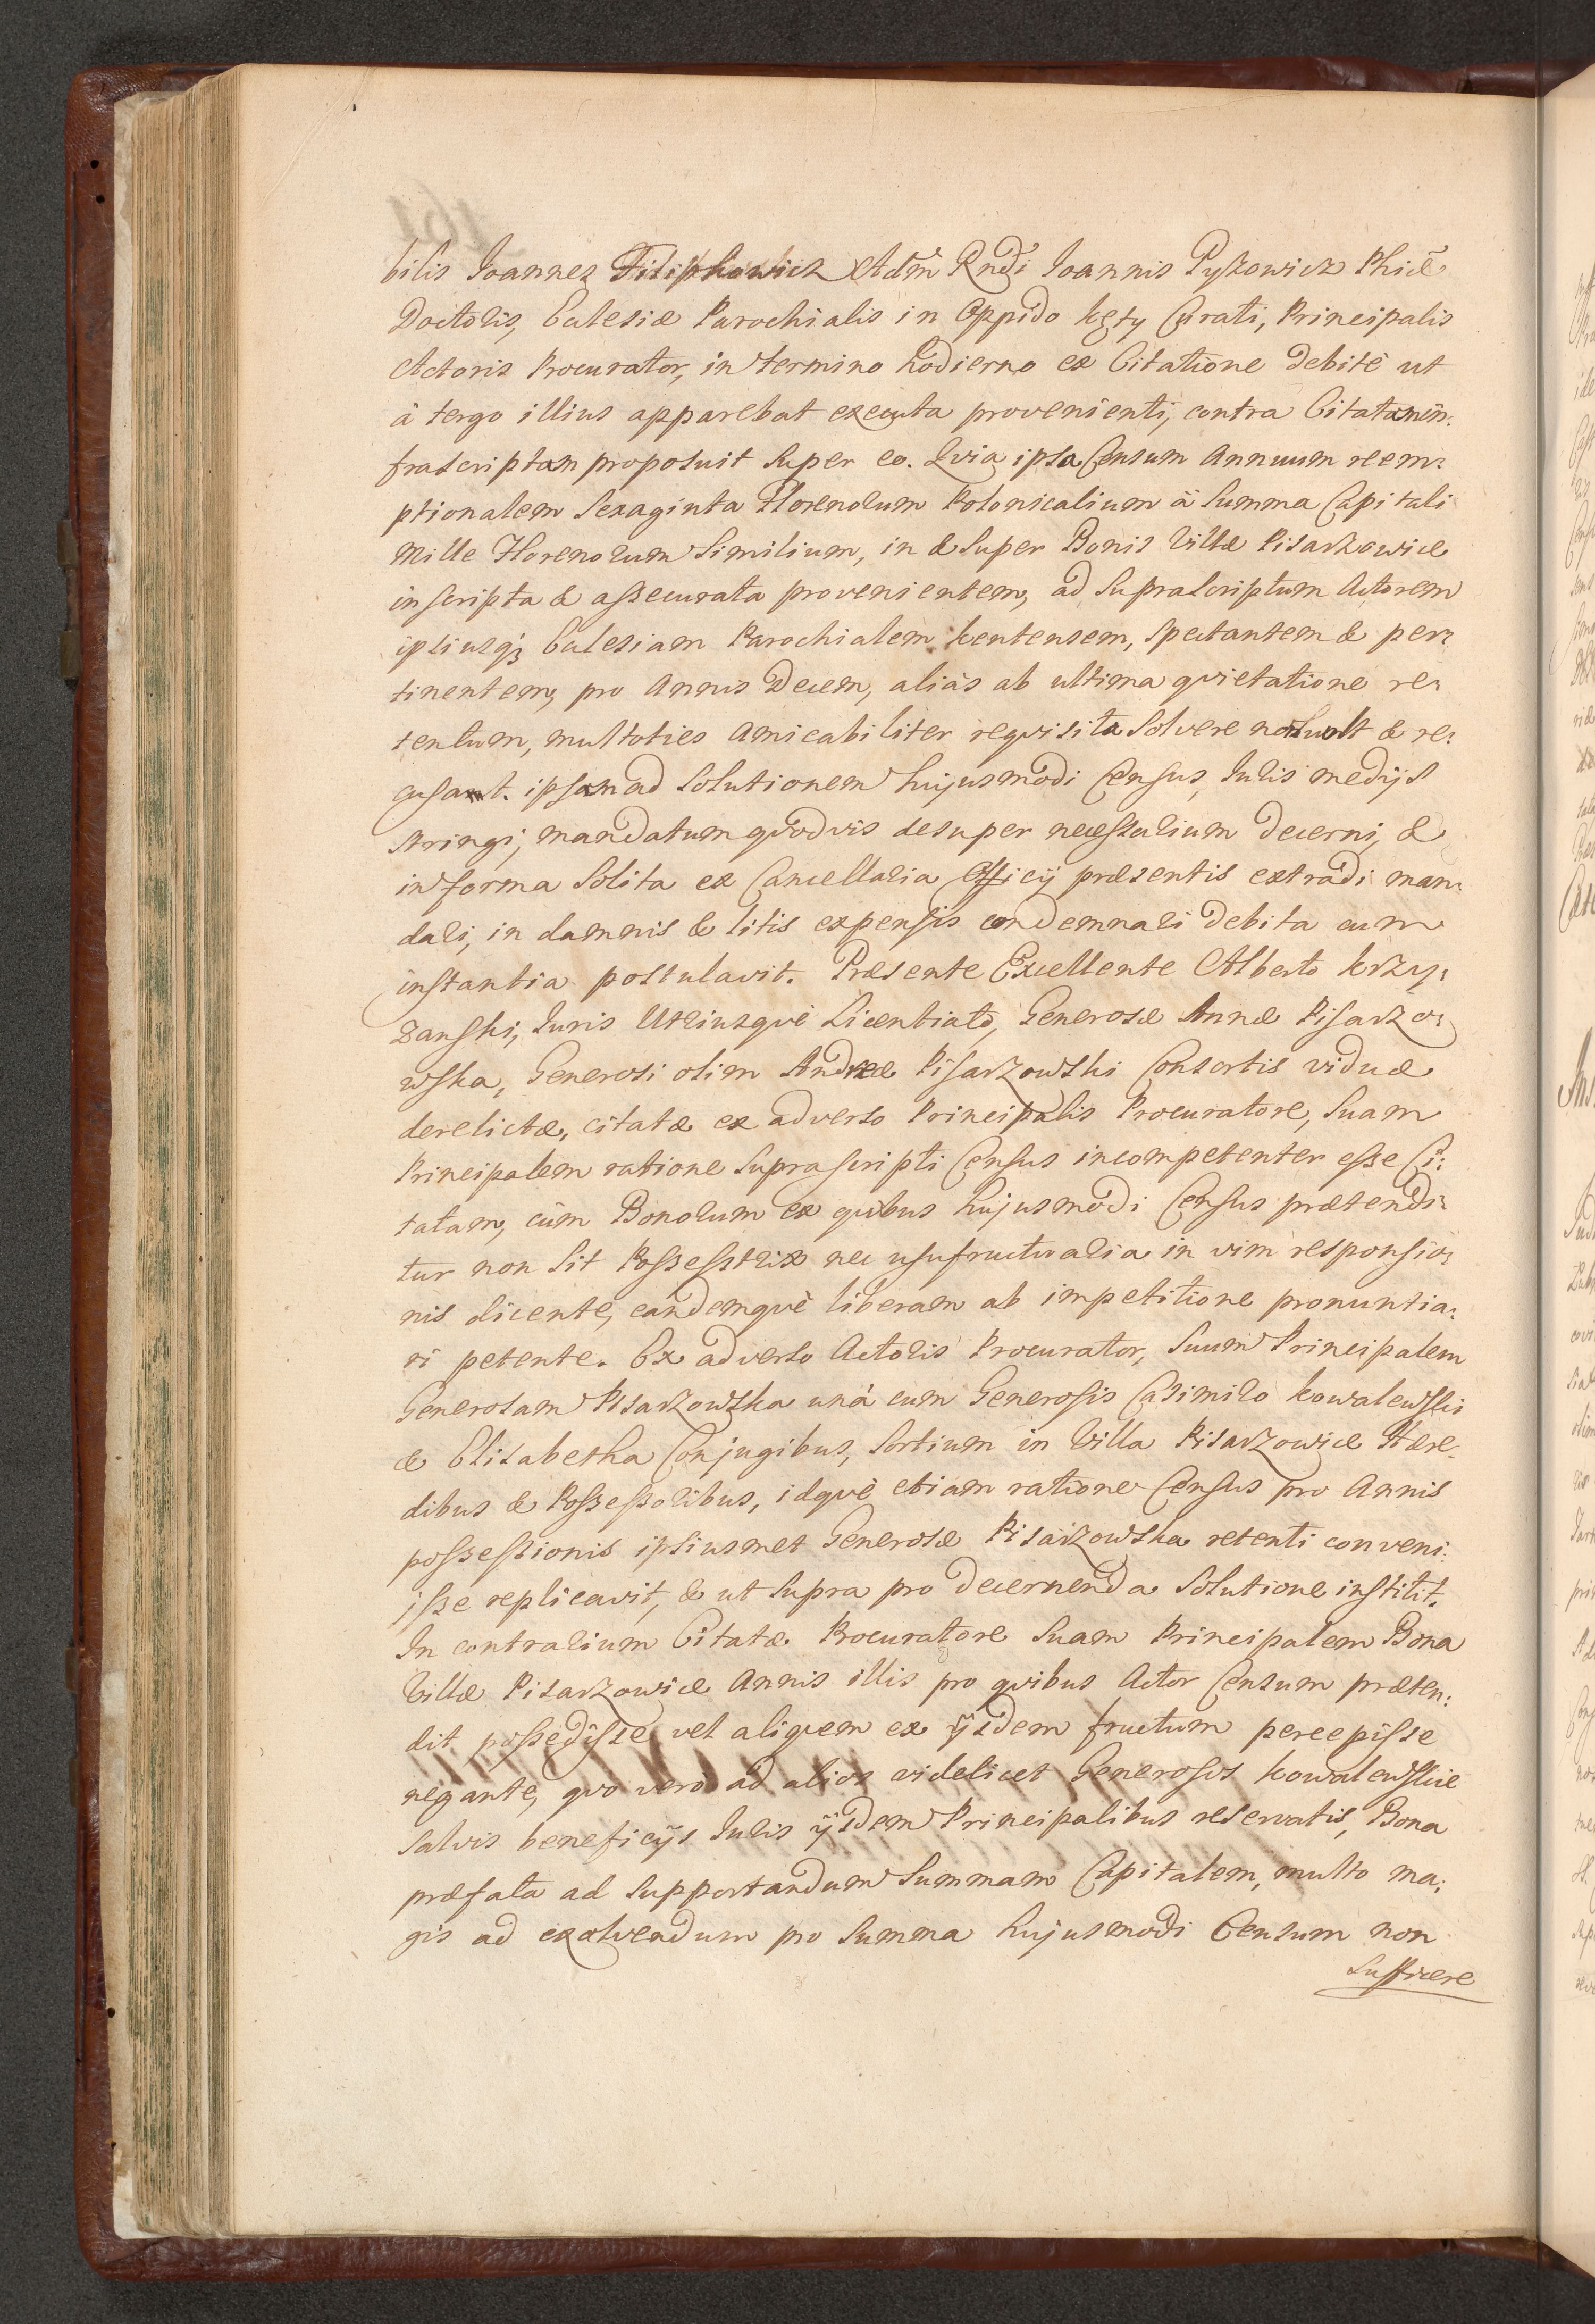 bilis Joannes Filiphowicz Adm̃ Rnđi Joannis Pyszowicz Phiæ
Doctoris, Ecclesiæ Parochialis in Oppido Kęty Curati, Principalis
Actoris Procurator, in termino hodierno ex Citatione debitè ut
à tergo illius apparebat executa provenienti, contra Citatam in:
frascriptam proposuit super eo. Qvia ipsa Censum Annuum reem:
ptionalem Sexaginta Florenorum Polonicalium à Summa Capitali
Mille Florenorum Similium, in & super Bonis Villæ Pisarzowice
inscripta & assecurata provenientem, ad Suprascriptum Actorem
ipsiusq; Ecclesiam Parochialem Kentensem, spectantem & per:
tinentem, pro Annis Decem, aliàs ab ultima qvietatione re:
tentum, multoties amicabiliter reqvisita Solvere non vult & re:
cusat. ipsam ad Solutionem hujusmodi Census, Juris medijs
stringi, mandatum qvodvis desuper necessarium decerni, &
in forma Solita ex Cancellaria Officij præsentis extradi man:
dari, in damnis & litis expensis condemnari debita cum
instantia postulavit. Præsente Excellente Alberto Krzy:
zanski, Juris Utriusqvè Licentiato, Generosæ Annæ Pisarzo:
wska, Generosi olim Andreæ Pisarzowski Consortis viduæ
derelictæ, citatæ ex adverso Principalis Procuratore, Suam
Principalem ratione Suprascripti Census incompetenter esse Ci:
tatam, cùm Bonorum ex qvibus hujusmodi Census prætendi:
tur non sit Possessrix nec usufructuaria in vim responsio:
nis dicente, eandemqvè liberam ab impetitione pronuntia:
ri petente. Ex adverso Actoris Procurator, Suum Principalem
Generosam Pisarzowska unà cum Generosis Casimiro Kowalewski
& Elisabetha Conjugibus, Sortium in Villa Pisarzowice Hære:
dibus & Possessoribus, idqvè etiam ratione Census pro Annis
possessionis ipsiusmet Generosæ Pisarzowska retenti conveni:
isse replicavit, & ut supra pro decernenda Solutione institit.
In contrarium Citatæ Procuratore Suam Principalem Bona
Villæ Pisarzowice Annis illis pro qvibus Actor Censum præten:
dit possedisse vel aliqvem ex ijsdem fructum percepisse
negante, qvo verò ad alios videlicet Generosos Kowalewskie
Salvis beneficijs Juris ijsdem Principalibus reservatis, Bona
præfata ad Supportandum Summam Capitalem, multo ma:
gis ad exolvendum pro Summa hujusmodi Censum non
Sufficere